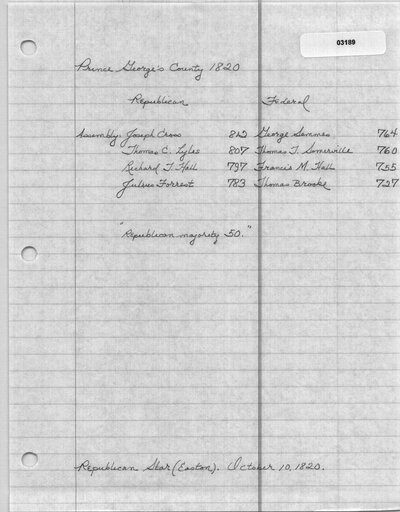 03189
Prince George's County 1820
Republican Federal
Assembly: Joseph Cross 812 George Semmes 764
Thomas C. Lyles 807 Thomas T. Somerville 760
Richard T. Hall 797 Francis M. Hall 755
Julius Forrest 783 Thomas Brooke 727
"Republican majority 50."
Republican Star (Easton). October 10, 1820.